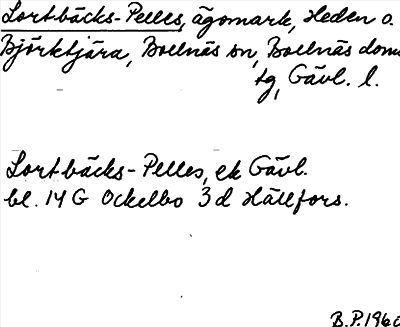 Lortbäcks-Pelles, ägomark, Heden o.
Björktjära, Bollnäs sn, Bollnäs doms
tg, Gävl. l.
Lortbäcks-Pelles, ek Gävl.
bl. 14 G Ockelbo 3 d Hällfors.
B.P. 1960